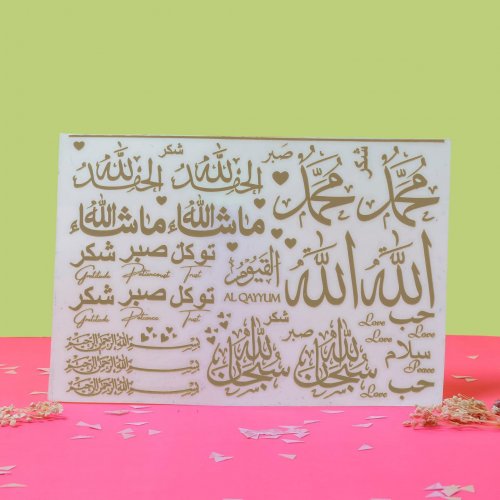 شكر
الحمد لله الحمد لله
صبر
شكر
محمد محمد
ماشاء الله ماشاء الله
توكل صبر شكر
Gratitude Patience Trust
القيوم
AL QAYYUM
الله الله
توكل صبر شكر
Gratitude Patience Trust
شكر
صبر
حب
Love
Love
سلام
Peace
حب
Love
Love
سبحان الله سبحان الله
بسم الله الرحمن الرحيم
بسم الله الرحمن الرحيم
بسم الله الرحمن الرحيم